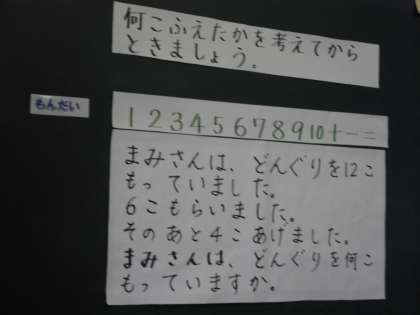 何こふえたかを考えてから
ときましょう。
もんだい
12345678910+-=
まみさんは、どんぐりを12こ
もっていました。
6こもらいました。
そのあと4こあげました。
まみさんは、どんぐりを何こ
もっていますか。